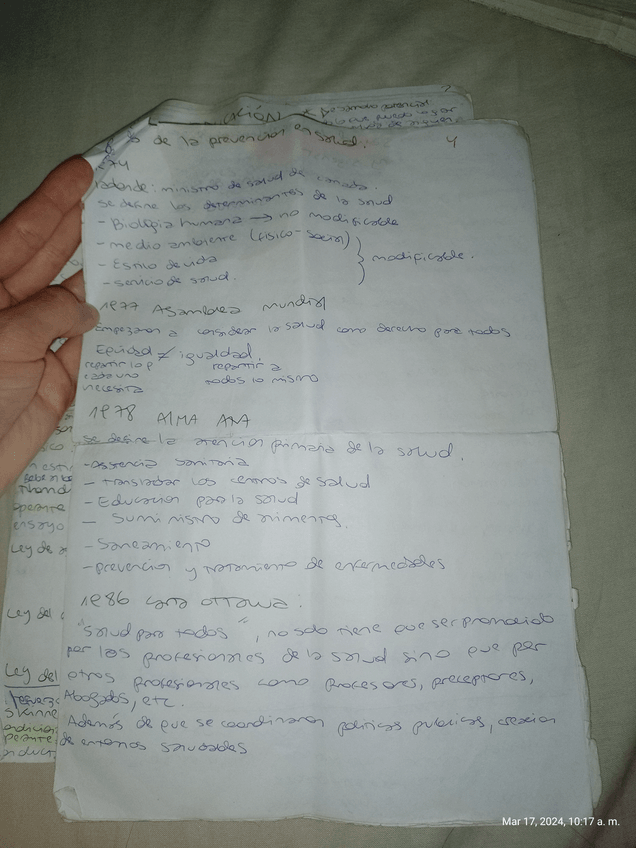 ACIÓN
de la prevencion en salud. 4
Lalonde: ministro de salud de canada.
se define los determinantes de la salud
- Biologia humana → no modificable
- medio ambiente (fisico-social)
- Estilo de vida
- servicio de salud.
modificable.
1977 Asamblea mundial
Empezaron a considerar la salud como derecho para todos
Equidad ≠ igualdad.
repartir lo q
cada uno
necesita
repartir a
todos lo mismo
1978 ALMA ATA
se define la atencion primaria de la salud.
- asistencia sanitaria
- transladar los centros de salud
- Educacion para la salud
- Suministro de alimentos.
- Saneamiento
- prevencion y tratamiento de enfermedades
1986 carta OTTAWA:
"Salud para todos", no solo tiene que ser promovido
por los profesionales de la salud sino que por
otros profesionales como profesores, preceptores,
Abogados, etc.
Además de que se coordinaron politicas publicas, creacion
de entornos saludables
ensayo
Ley de
Ley del
Ley del
Mar 17, 2024, 10:17 a. m.